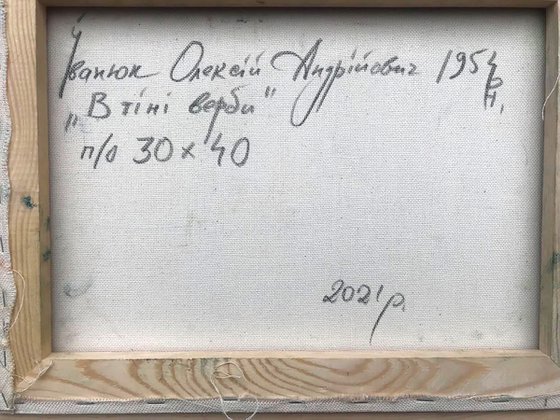 Іванюк Олексій Андрійович 1954 р.н.
„В тіні верби"
п/о 30 x 40
2021р.